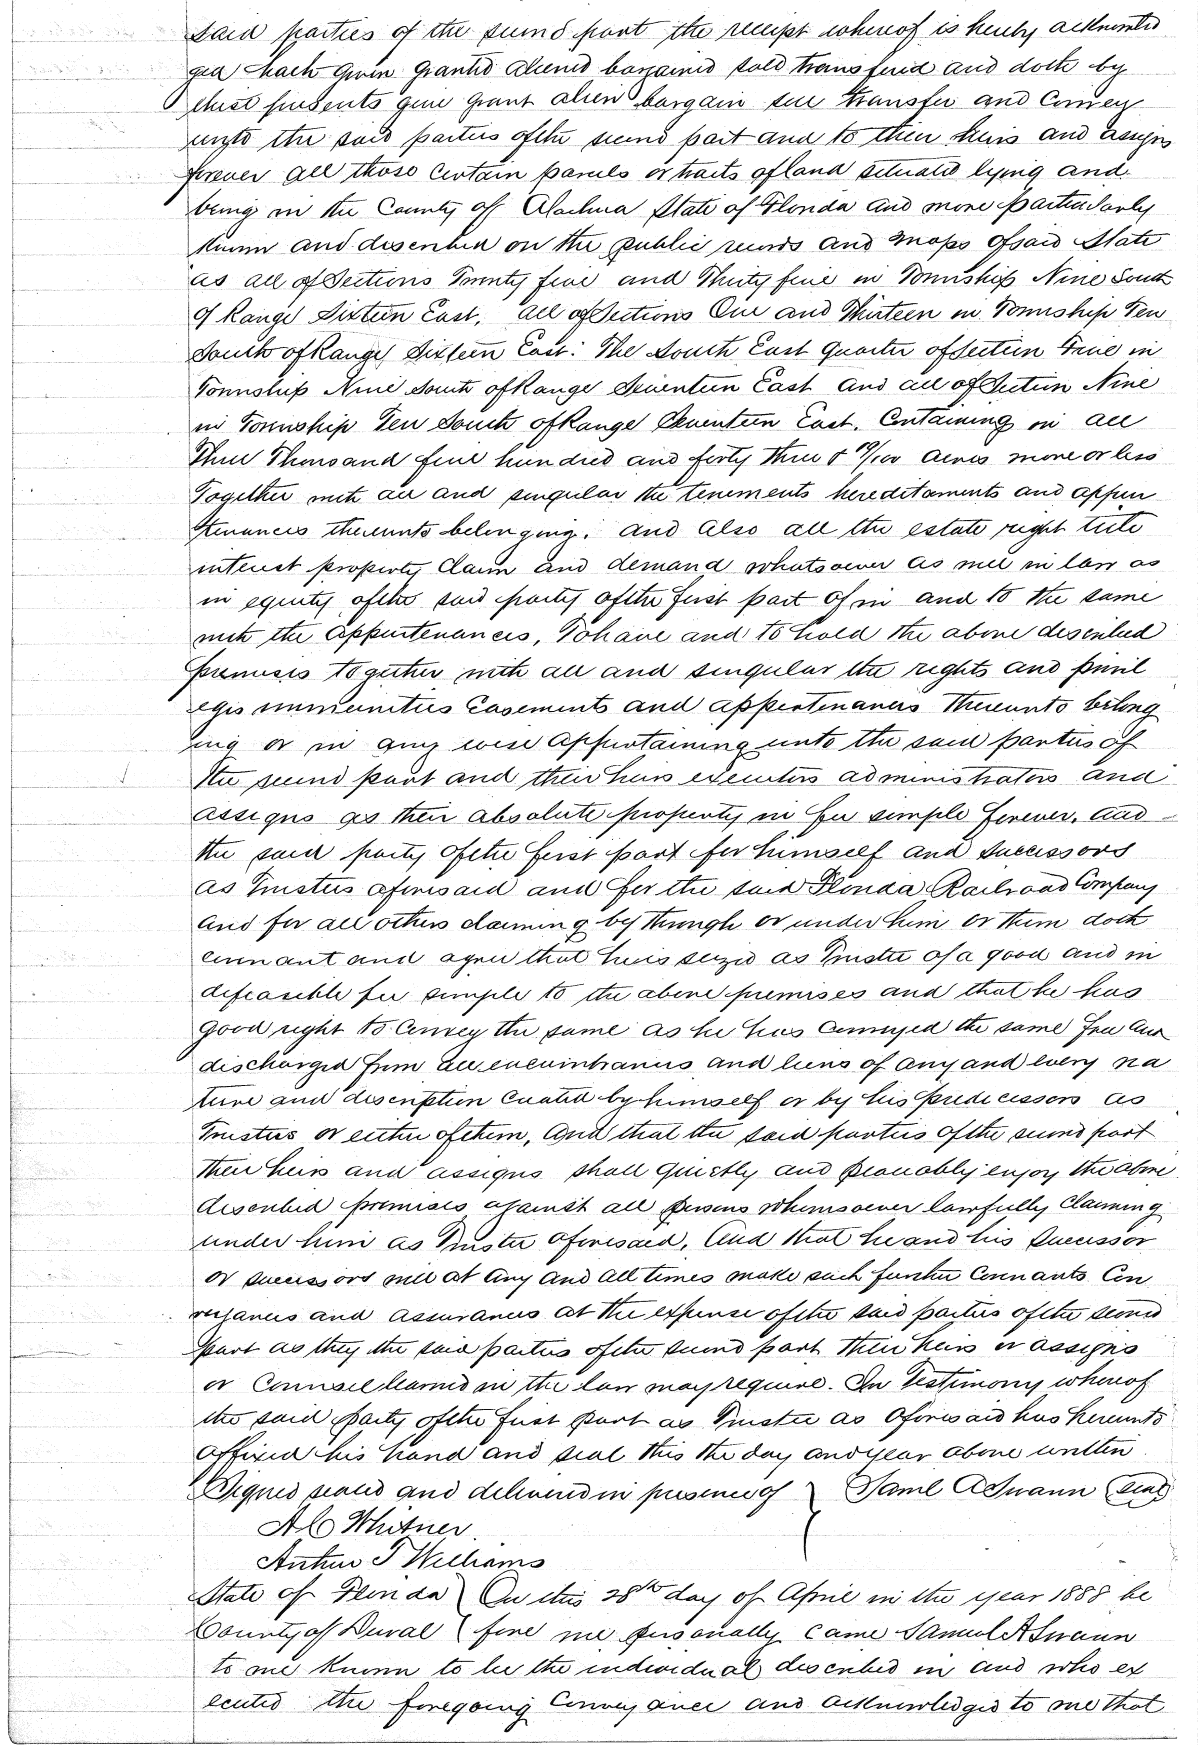 said parties of the second part the receipt whereof is hereby acknowled
ged hath given granted aliened bargained sold transferred and doth by
these presents give grant alien bargain sell transfer and convey
unto the said parties of the second part and to their heirs and assigns
forever all those certain parcels or tracts of land situated lying and
being in the County of Alachua State of Florida and more particularly
known and described on the public records and maps of said State
as all of Sections Twenty five and Thirty five in Township Nine South
of Range Sixteen East. All of Sections One and Thirteen in Township Ten
South of Range Sixteen East: The South East Quarter of Section Five in
Township Nine South of Range Seventeen East and all of Section Nine
in Township Ten South of Range Seventeen East. Containing in all
Three Thousand five hundred and forty three & /100 acres more or less
Together with all and singular the tenements hereditaments and appur
tenances thereunto belonging. and also all the estate right title
interest property claim and demand whatsoever as well in law as
in equity of the said party of the first part of in and to the same
with the appurtenances, To have and to hold the above described
premises together with all and singular the rights and privil
eges immunities easements and appurtenances thereunto belong
ing or in any wise appertaining unto the said parties of
the second part and their heirs executors administrators and
assigns as their absolute property in fee simple forever. And
the said party of the first part for himself and successors
as Trustees aforesaid and for the said Florida Railroad Company
and for all others claiming by through or under him or them doth
covenant and agree that he is seized as Trustee of a good and in
defeasible fee simple to the above premises and that he has
good right to convey the same as he has conveyed the same free and
discharged from all encumbrances and liens of any and every na
ture and description created by himself or by his predecessors as
Trustees or either of them, And that the said parties of the second part
their heirs and assigns shall quietly and peaceably enjoy the above
described premises against all persons whomsoever lawfully claiming
under him as Trustee aforesaid. And that he and his successor
or successors will at any and all times make such further covenants con
veyances and assurances at the expense of the said parties of the second
part as they the said parties of the second part their heirs or assigns
or Counsel learned in the law may require. In Testimony whereof
the said party of the first part as Trustee as aforesaid has hereunto
affixed his hand and seal this the day and year above written
Signed sealed and delivered in presence of } Saml A Swann (seal)
A C Whitner
Arthur T Williams
State of Florida } On this 28th day of April in the year 1888 be
County of Duval } fore me personally came Samuel A Swann
to me known to be the individual described in and who ex
ecuted the foregoing conveyance and acknowledged to me that